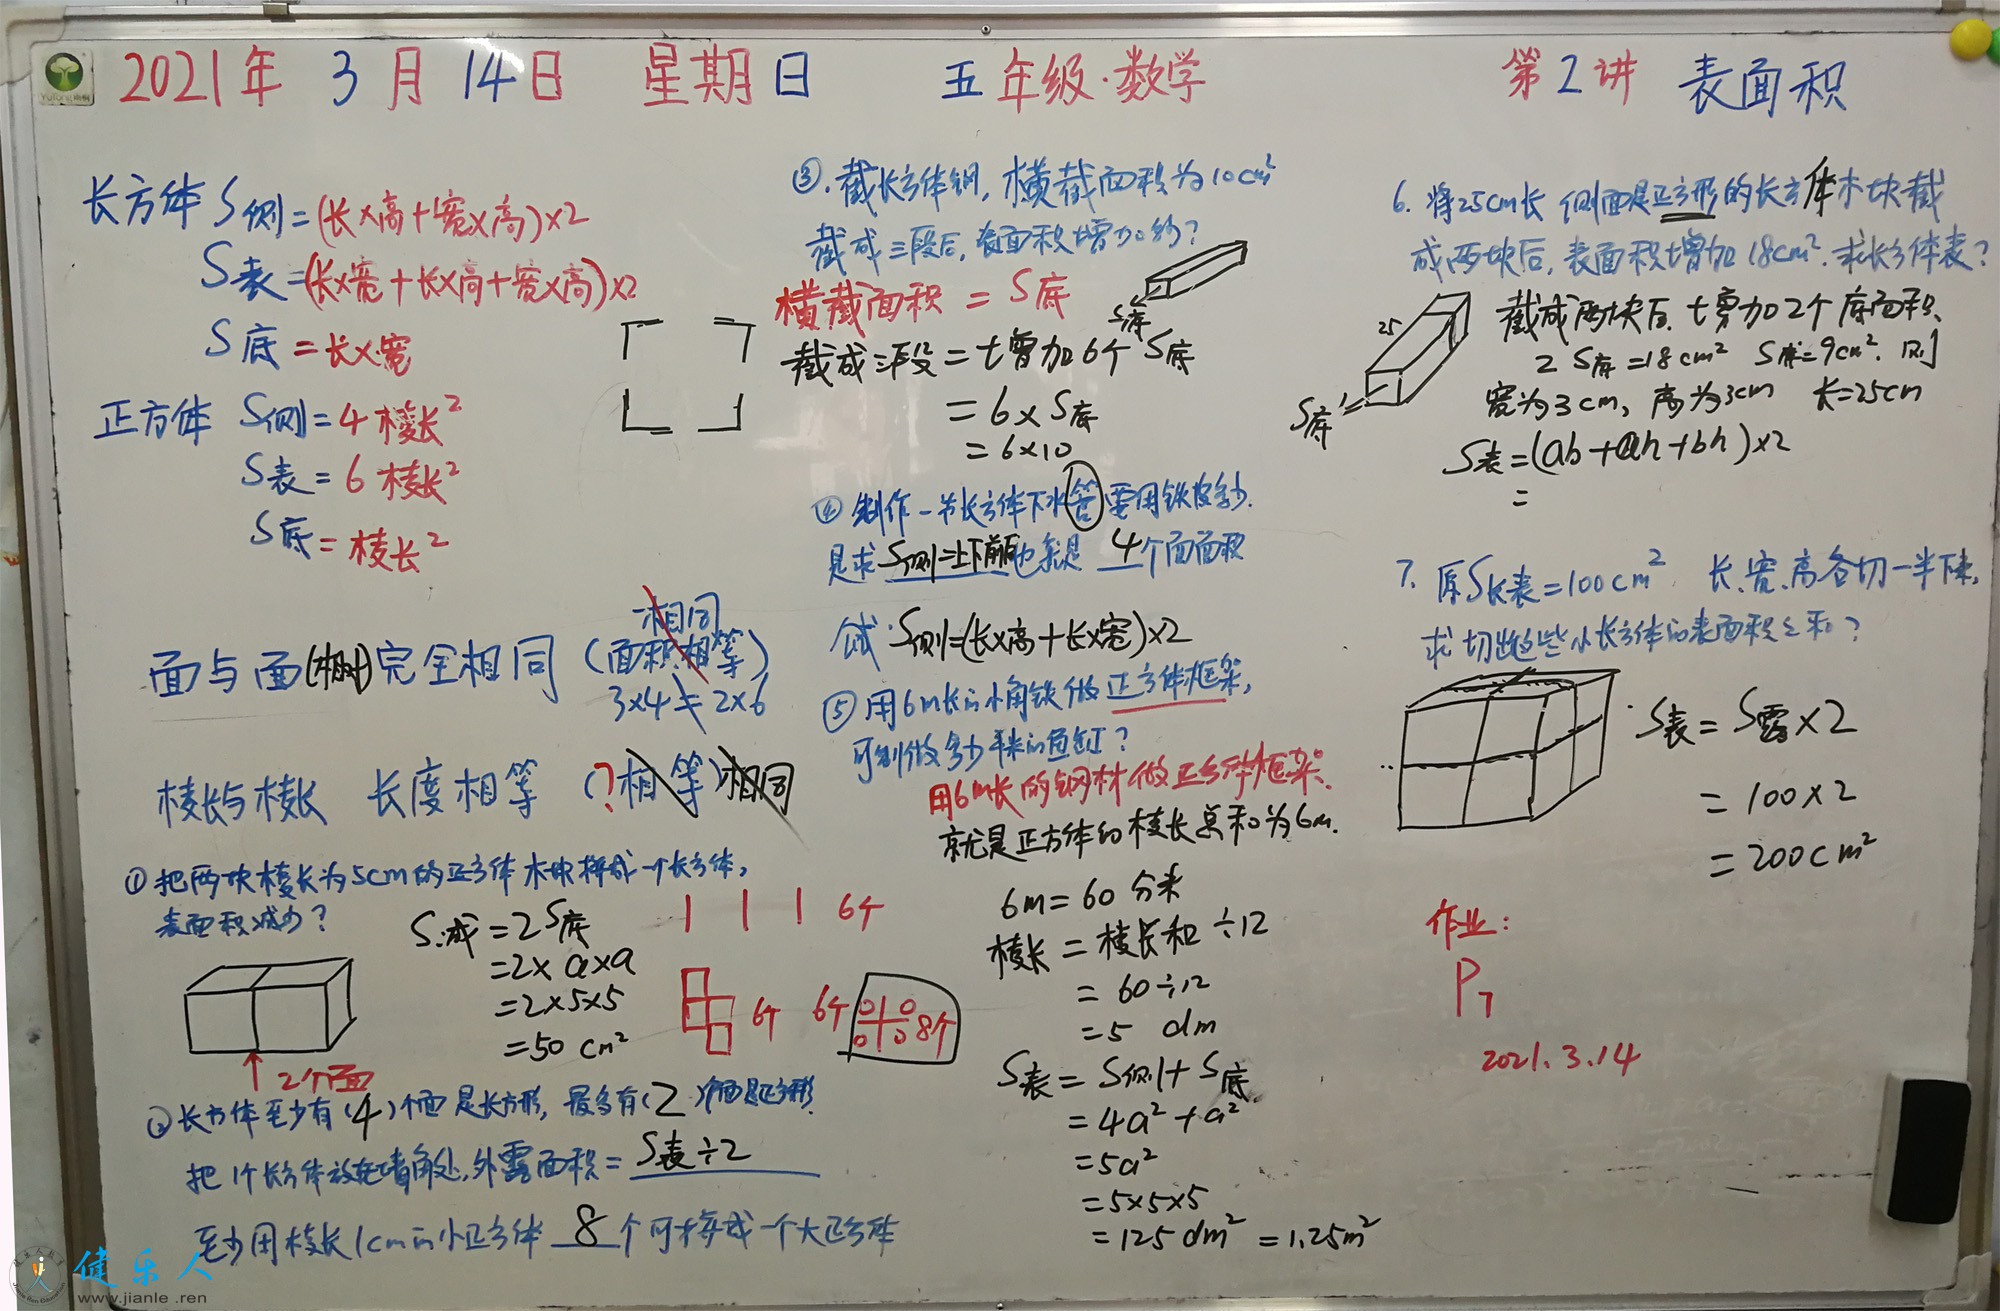 2021年 3月 14日 星期日 五年级·数学 第2讲 表面积
长方体 S侧=(长×高+宽×高)×2
S表=(长×宽+长×高+宽×高)×2
S底=长×宽
正方体 S侧=4棱长²
S表=6棱长²
S底=棱长²
相同
面与面(相对)完全相同(面积相等)
3×4=2×6
棱长与棱长 长度相等 (?相等)相同
①把两块棱长为5cm的正方体木块拼成一个长方体,
表面积减少?
S减=2S底
=2×a×a
=2×5×5
=50 cm²
2个面
6个
6个 6个
8个
②长方体至少有(4)个面是长方形,最多有(2)个面是正方形.
把1个长方体放在墙角处,外露面积=S表÷2
至少用棱长1cm的小正方体 8 个可拼成一个大正方体
③.截长方体钢,横截面积为10cm²
截成三段后,表面积增加多少?
横截面积=S底
S底
截成三段=增加6个S底
=6×S底
=6×10
④制作一节长方体下水管要用铁皮多少.
是求S侧=上下前后也就是 4个面面积
S侧=(长×高+长×宽)×2
⑤用6m长的小角铁做正方体框架,
可制做多少 的鱼缸?
用6m长的钢材做正方体框架.
就是正方体的棱长总和为6m.
6m=60分米
棱长=棱长和÷12
=60÷12
=5 dm
S表=S侧+S底
=4a²+a²
=5a²
=5×5×5
=125dm²=1.25m²
6.将25cm长 侧面是正方形的长方体木块截
成两块后,表面积增加18cm².求长方体表?
25
S底
截成两块后,增加2个底面积.
2S底=18cm² S底=9cm².则
宽为3cm,高为3cm 长=25cm
S表=(ab+ah+bh)×2
=
7.原S长表=100cm² 长、宽、高各切一半下来,
求切出这些小长方体的表面积之和?
S表=S露×2
=100×2
=200cm²
作业:
P7
2021.3.14
健乐人
www.jianle.ren